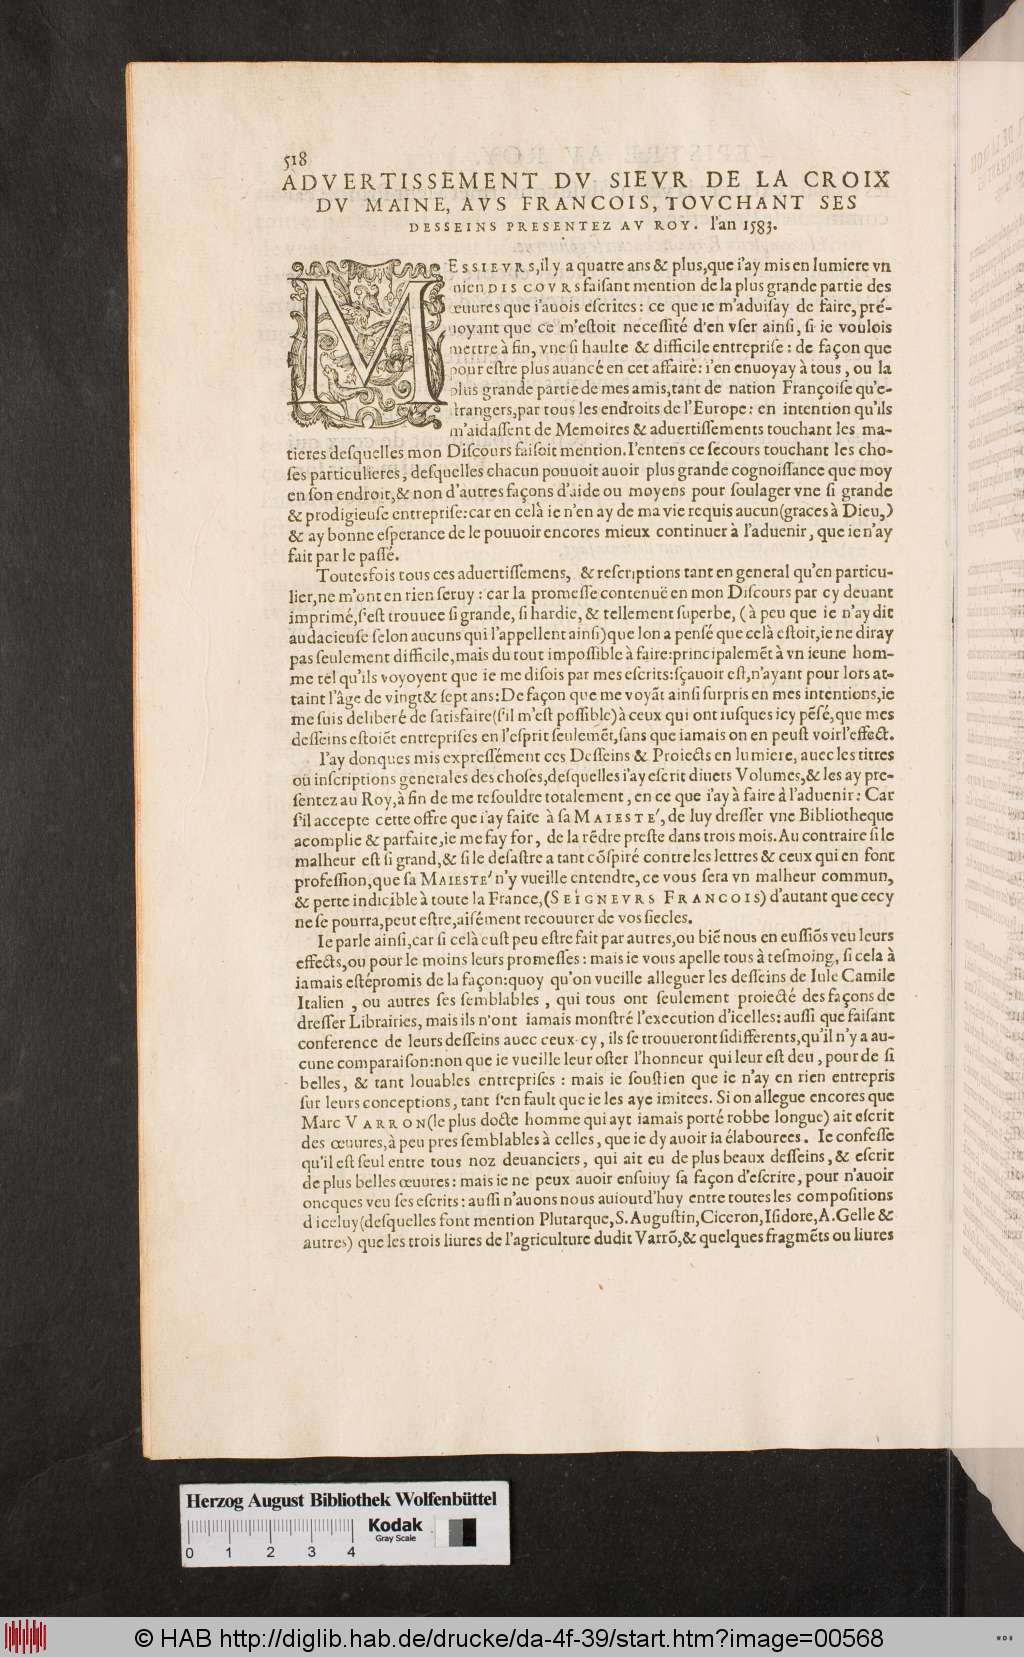 518
ADVERTISSEMENT DV SIEVR DE LA CROIX
DV MAINE, AVS FRANCOIS, TOVCHANT SES
DESSEINS PRESENTEZ AV ROY. l'an 1583.
MESSIEVRS, il y a quatre ans & plus, que i'ay mis en lumiere vn
mien DISCOVRS faiſant mention de la plus grande partie des
œuures que i'auois eſcrites: ce que ie m'aduiſay de faire, pré-
uoyant que ce m'eſtoit neceſſité d'en vſer ainſi, ſi ie voulois
mettre à fin, vne ſi haulte & difficile entrepriſe: de façon que
pour eſtre plus auancé en cet affaire: i'en enuoyay à tous, ou la
plus grande partie de mes amis, tant de nation Françoiſe qu'e-
ſtrangers, par tous les endroits de l'Europe: en intention qu'ils
m'aidaſſent de Memoires & aduertiſſements touchant les ma-
tieres deſquelles mon Diſcours faiſoit mention. I'entens ce ſecours touchant les cho-
ſes particulieres, deſquelles chacun pouuoit auoir plus grande cognoiſſance que moy
en ſon endroit, & non d'autres façons d'aide ou moyens pour ſoulager vne ſi grande
& prodigieuſe entrepriſe: car en celà ie n'en ay de ma vie requis aucun (graces à Dieu,)
& ay bonne eſperance de le pouuoir encores mieux continuer à l'aduenir, que ie n'ay
fait par le paſſé.
Toutesfois tous ces aduertiſſemens, & reſcriptions tant en general qu'en particu-
lier, ne m'ont en rien ſeruy: car la promeſſe contenuë en mon Diſcours par cy deuant
imprimé, ſ'eſt trouuee ſi grande, ſi hardie, & tellement ſuperbe, (à peu que ie n'ay dit
audacieuſe ſelon aucuns qui l'appellent ainſi) que lon a penſé que celà eſtoit, ie ne diray
pas ſeulement difficile, mais du tout impoſſible à faire: principalemẽt à vn ieune hom-
me tel qu'ils voyoyent que ie me diſois par mes eſcrits: ſçauoir eſt, n'ayant pour lors at-
taint l'âge de vingt & ſept ans: De façon que me voyãt ainſi ſurpris en mes intentions, ie
me ſuis deliberé de ſatisfaire (ſ'il m'eſt poſſible) à ceux qui ont iuſques icy pẽſé, que mes
deſſeins eſtoiẽt entrepriſes en l'eſprit ſeulemẽt, ſans que iamais on en peuſt voir l'effect.
I'ay donques mis expreſſément ces Deſſeins & Proiects en lumiere, auec les titres
où inſcriptions generales des choſes, deſquelles i'ay eſcrit diuers Volumes, & les ay pre-
ſentez au Roy, à fin de me reſouldre totalement, en ce que i'ay à faire à l'aduenir: Car
ſ'il accepte cette offre que i'ay faite à ſa MAIESTE', de luy dreſſer vne Bibliotheque
acomplie & parfaite, ie me fay for, de la rẽdre preſte dans trois mois. Au contraire ſi le
malheur eſt ſi grand, & ſi le deſaſtre a tant cõſpiré contre les lettres & ceux qui en font
profeſſion, que ſa MAIESTE' n'y vueille entendre, ce vous ſera vn malheur commun,
& perte indicible à toute la France, (SEIGNEVRS FRANCOIS) d'autant que cecy
ne ſe pourra, peut eſtre, aiſément recouurer de voſ ſiecles.
Ie parle ainſi, car ſi celà euſt peu eſtre fait par autres, ou biẽ nous en euſſiõs veu leurs
effects, ou pour le moins leurs promeſſes: mais ie vous apelle tous à teſmoing, ſi cela à
iamais eſté promis de la façon: quoy qu'on vueille alleguer les deſſeins de Iule Camile
Italien, ou autres ſes ſemblables, qui tous ont ſeulement proiecté des façons de
dreſſer Librairies, mais ils n'ont iamais monſtré l'execution d'icelles: auſſi que faiſant
conference de leurs deſſeins auec ceux-cy, ils ſe trouueront ſi differents, qu'il n'y a au-
cune comparaiſon: non que ie vueille leur oſter l'honneur qui leur eſt deu, pour de ſi
belles, & tant louables entrepriſes: mais ie ſouſtien que ie n'ay en rien entrepris
ſur leurs conceptions, tant ſ'en fault que ie les aye imitees. Si on allegue encores que
Marc VARRON (le plus docte homme qui ayt iamais porté robbe longue) ait eſcrit
des œuures, à peu pres ſemblables à celles, que ie dy auoir ia élabourees. Ie confeſſe
qu'il eſt ſeul entre tous noz deuanciers, qui ait eu de plus beaux deſſeins, & eſcrit
de plus belles œuures: mais ie ne peux auoir enſuiuy ſa façon d'eſcrire, pour n'auoir
oncques veu ſes eſcrits: auſſi n'auons nous auiourd'huy entre toutes les compoſitions
d'iceluy (deſquelles font mention Plutarque, S. Auguſtin, Ciceron, Iſidore, A. Gelle &
autres) que les trois liures de l'agriculture dudit Varrõ, & quelques fragmẽts ou liures
Herzog August Bibliothek Wolfenbüttel
0 1 2 3 4
Kodak
Gray Scale
© HAB http://diglib.hab.de/drucke/da-4f-39/start.htm?image=00568